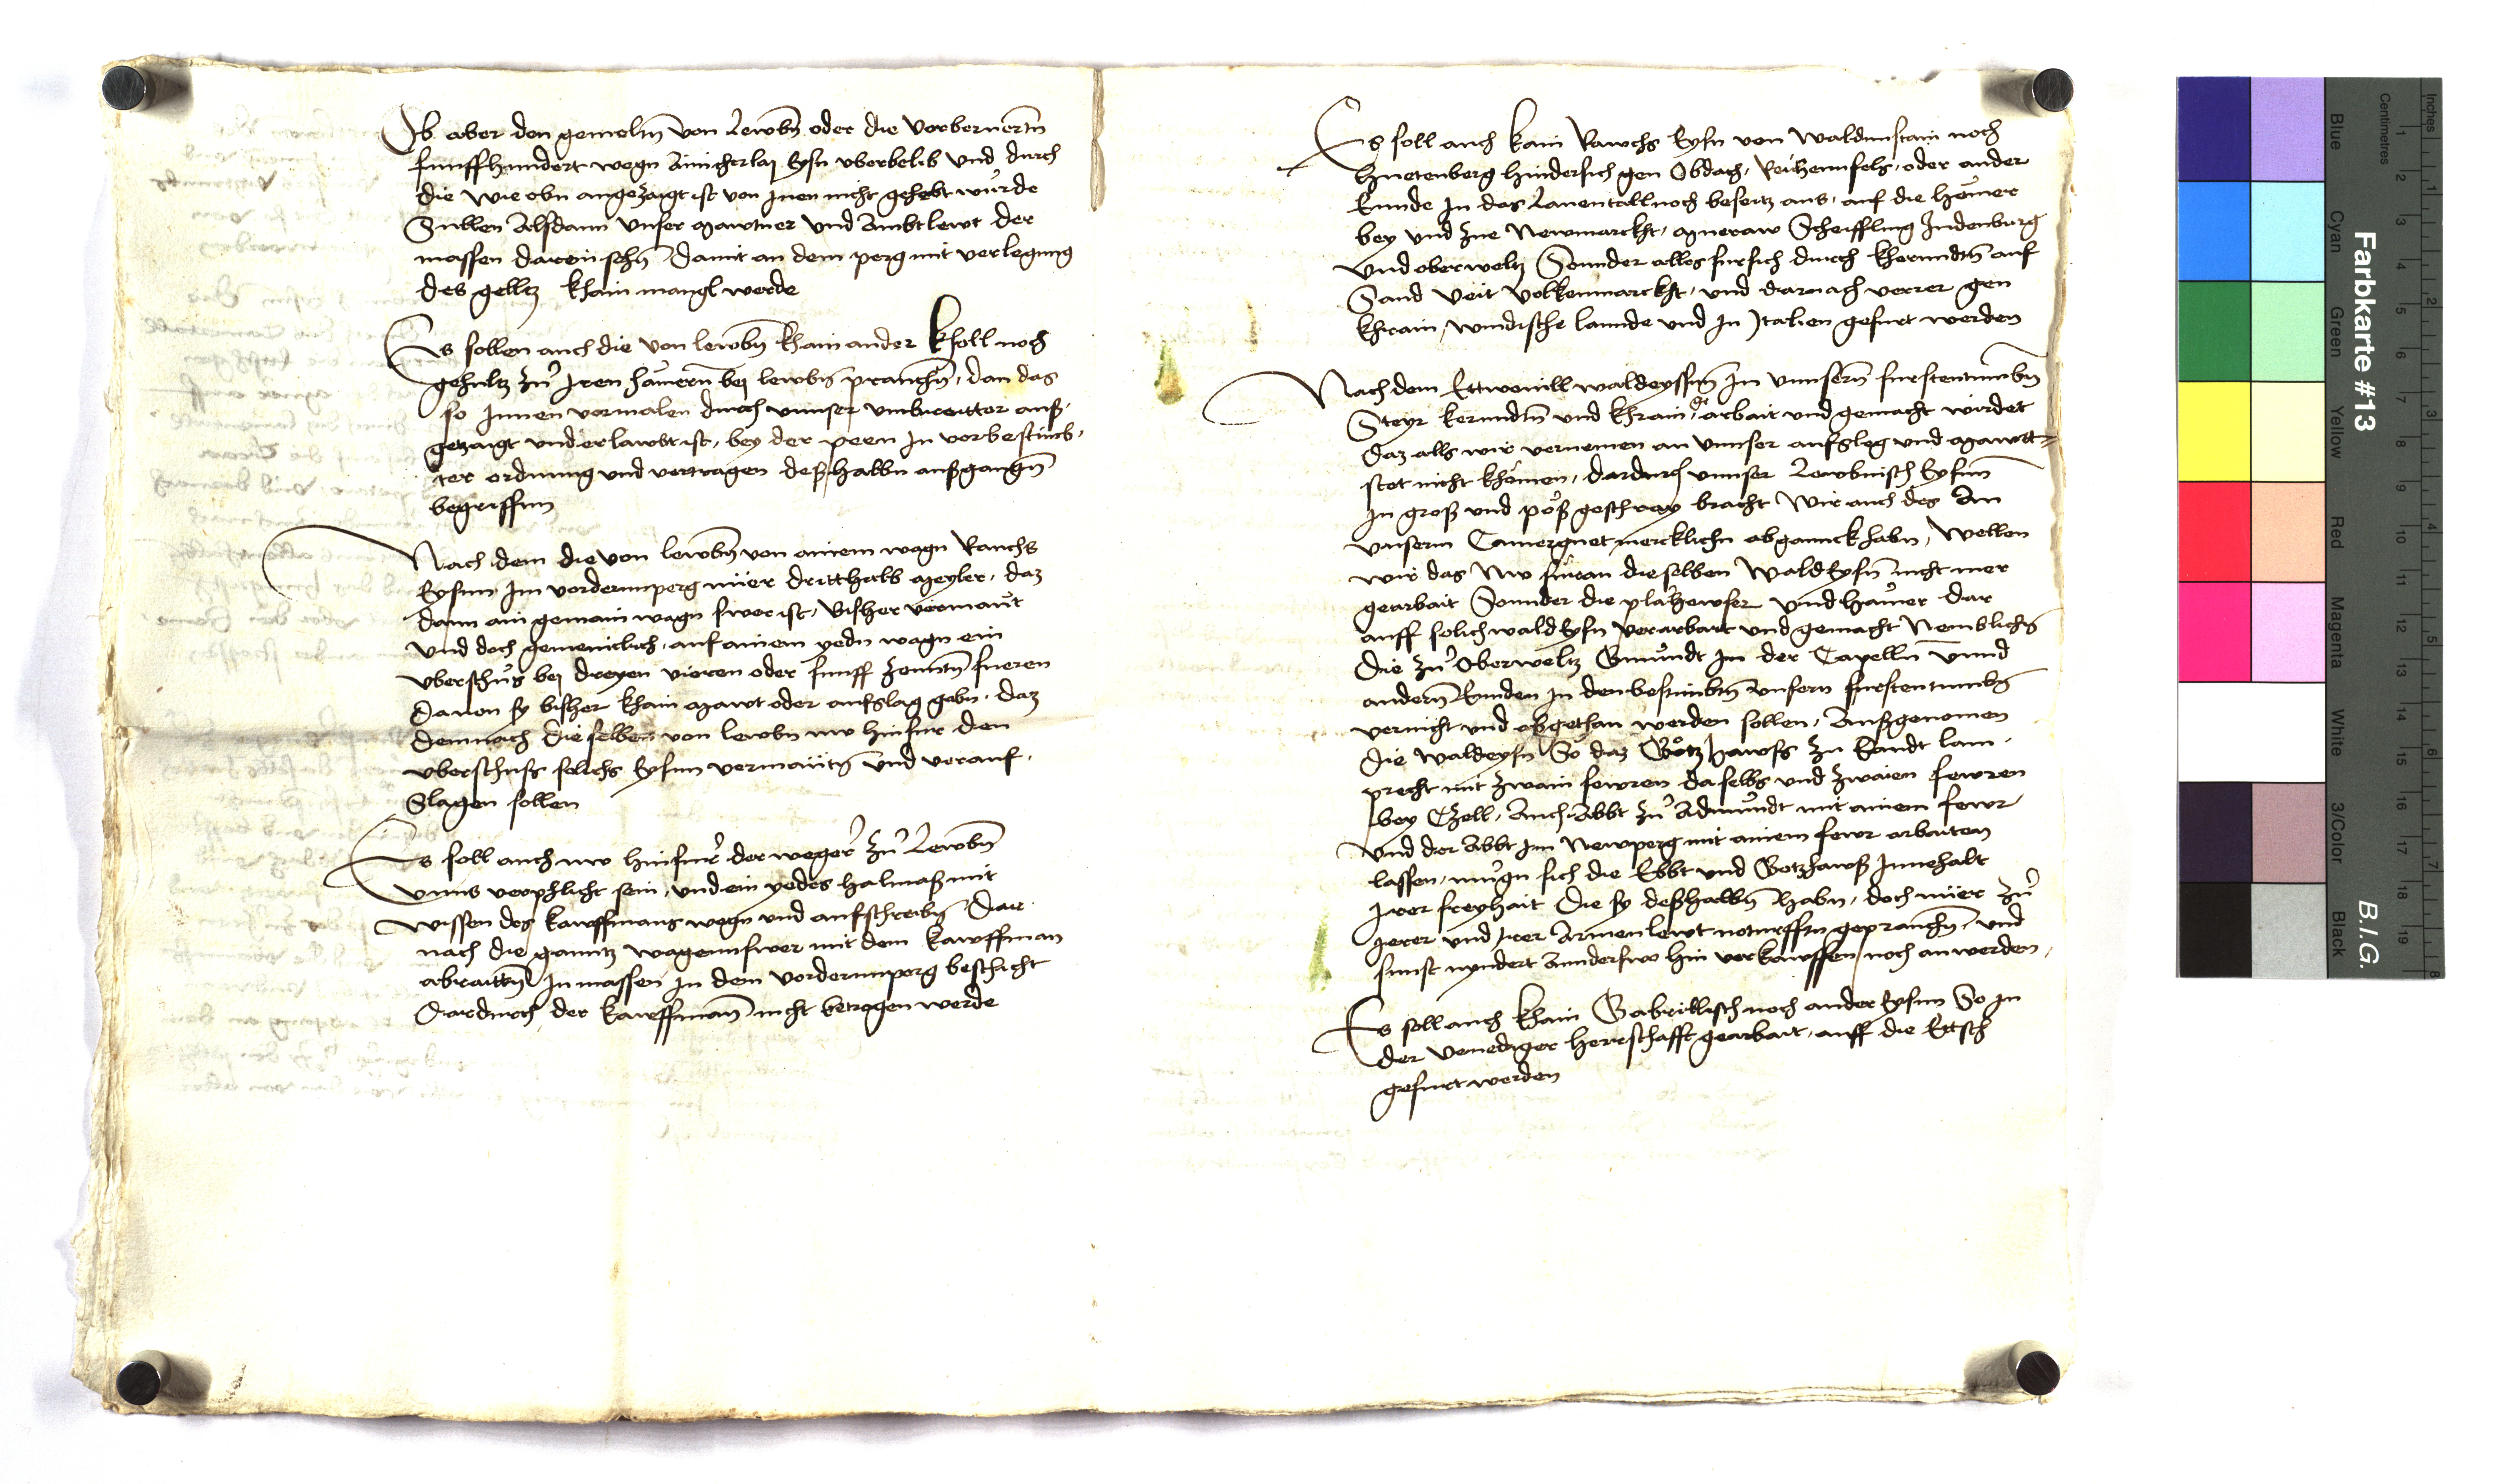 Ob aber den gemeltn von Lewbn oder die vorberuertn
funffhundert wegn ainicherlaj Eysn vberbelib vnd durch
die wie obn angezaigt ist von Inen nicht gehebt wurde
Sullen Alsdann vnser mawtner vnd Ambtlewt der
massen darein sehn damit an dem perg mit verlegung
des gelltz khain mangl werde
Es sollen auch die von lewbn khain ander kholl noch
gehultz zu Iren hamern bej lewbn prauchn, dan das
so Innen vormalen durch vnnser vmbreitter auß,
getzaigt vnd erlawbt ist, bey der peen In vorbestimb,
ter ordnung vnd vertragen deßhalbn außgangn
begriffnn
Nach dem die von lewbn von ainem wagn Rauchs
Eysnn Im vordernnperg nuer dritthalb meyler, daz
dann ain gemain wagn swer ist, bisher vermaut
vnd doch gemeinclich, auf ainem yedn wagn ein
vberschus bej dreyen vieren oder funff zenntn fueren
Dauon sy bisher khain mawt oder aufslag gebn, daz
demnach dieselben von lewbn nw hinfur den
vberschuss solichs Eysnn vermautn vnd verauf,
Slagen sollen
Es soll auch nw hinfur der weger zu Lewbn
vnns verphlicht sein, vnd ein yedes halmaß mit
wissen des kawffmans wegn vnd aufschreibn Dar
nach die ganntz wagennswer mit dem kawffman
abraittn In massen In dem vordernnperg beschicht
Dardurch der kawffman nicht betrogen werde
Es soll auch kain Rawchs Eysn von Waldnnstain noch
Huetenberg hindersich gen Obdach, Reichennfels, oder ander
Ennde In das Lauentall noch beseitz aus, auf die hemer
bey vnd zue Newmarckht, mueraw Scheiffling Judenburg
vnd oberweltz Sonnder alles fursich durch kherndtn auf
Sand veit volkenmarckht, vnd darnach verrer gen
khrain, windische lannde vnd In Italien gefurt werden
Nach dem Ettwouill waldeyssnn In vnnsern furstentumbn
Steyr kernndtn vnd khrain, gearbait vnd gemacht wirdet
Daz alls wir vernemen an vnnser aufsleg vnd mawtt=
stet nicht khomen, dardurch vnnser Lewbnisch Eysnn
In groß vnd poß geschray bracht Wir auch des An
vnserm Camerguet mercklichn abganck habn, Wellen
wir das Nw furan dieselben Wald Eysn nicht mer
gearbait Sonnder die plahewser vnd hamer dar
auff solich wald Eysn verarbait vnd gemacht Nemblichn
Die zu Oberweltz Gmundt In der Capelln vnnd
andern Ennden In den bestimbtn vnsern furstentumbn
vernicht vnd abgethan werden sollen, Außgenomen
die waldeysn So daz Gotzhawss zu Sandt lam,
precht mit zwain fewren daselbs vnd zwaien fewren
bey Czell, Auch Abbt zu Admundt mit ainem fewr
vnd der Abbt Im Newperg mit ainem fewr arbaiten
lassen, mugn sich die Ebbt vnd Gotzhawß Innehalt
Irer freyhait Die sy deßhalbn habn, doch nuer zu
Irer vnd Irer Armenlewt noturfftn geprauchn, vnd
sunst nyndert Annderswo hin verkawffen noch anwerden,
Es soll auch khain Gabrillisch noch ander Eysnn So In
der Venediger herrschafft gearbait, auff die Ettsch
gefurt werden
Farbkarte #13
B.I.G.
Inches
Centimetres
Blue
Cyan
Green
Yellow
Red
Magenta
White
3/Color
Black